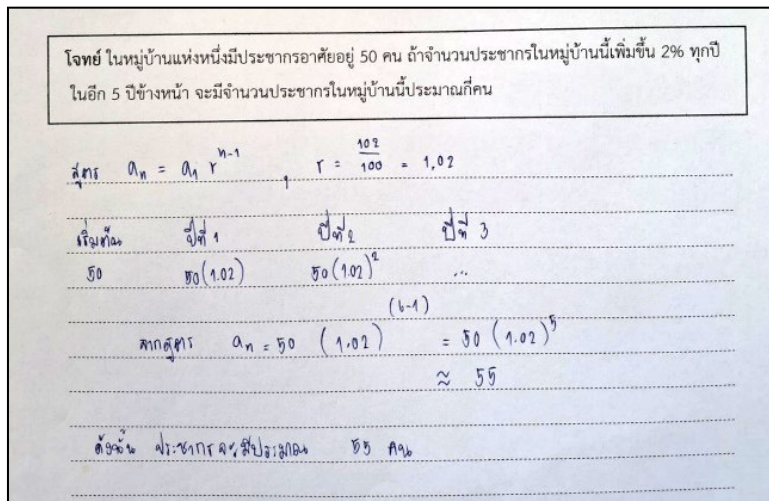 โจทย์ ในหมู่บ้านแห่งหนึ่งมีประชากรอาศัยอยู่ 50 คน ถ้าจำนวนประชากรในหมู่บ้านนี้เพิ่มขึ้น 2% ทุกปี
ในอีก 5 ปีข้างหน้า จะมีจำนวนประชากรในหมู่บ้านนี้ประมาณกี่คน
สูตร aₙ = a₁ rⁿ⁻¹ , r = 102/100 = 1.02
เริ่มต้น ปีที่ 1 ปีที่ 2 ปีที่ 3
50 50(1.02) 50(1.02)² ...
จากสูตร aₙ = 50 (1.02)⁽⁶⁻¹⁾ = 50 (1.02)⁵
≈ 55
ดังนั้น ประชากรจะมีประมาณ 55 คน